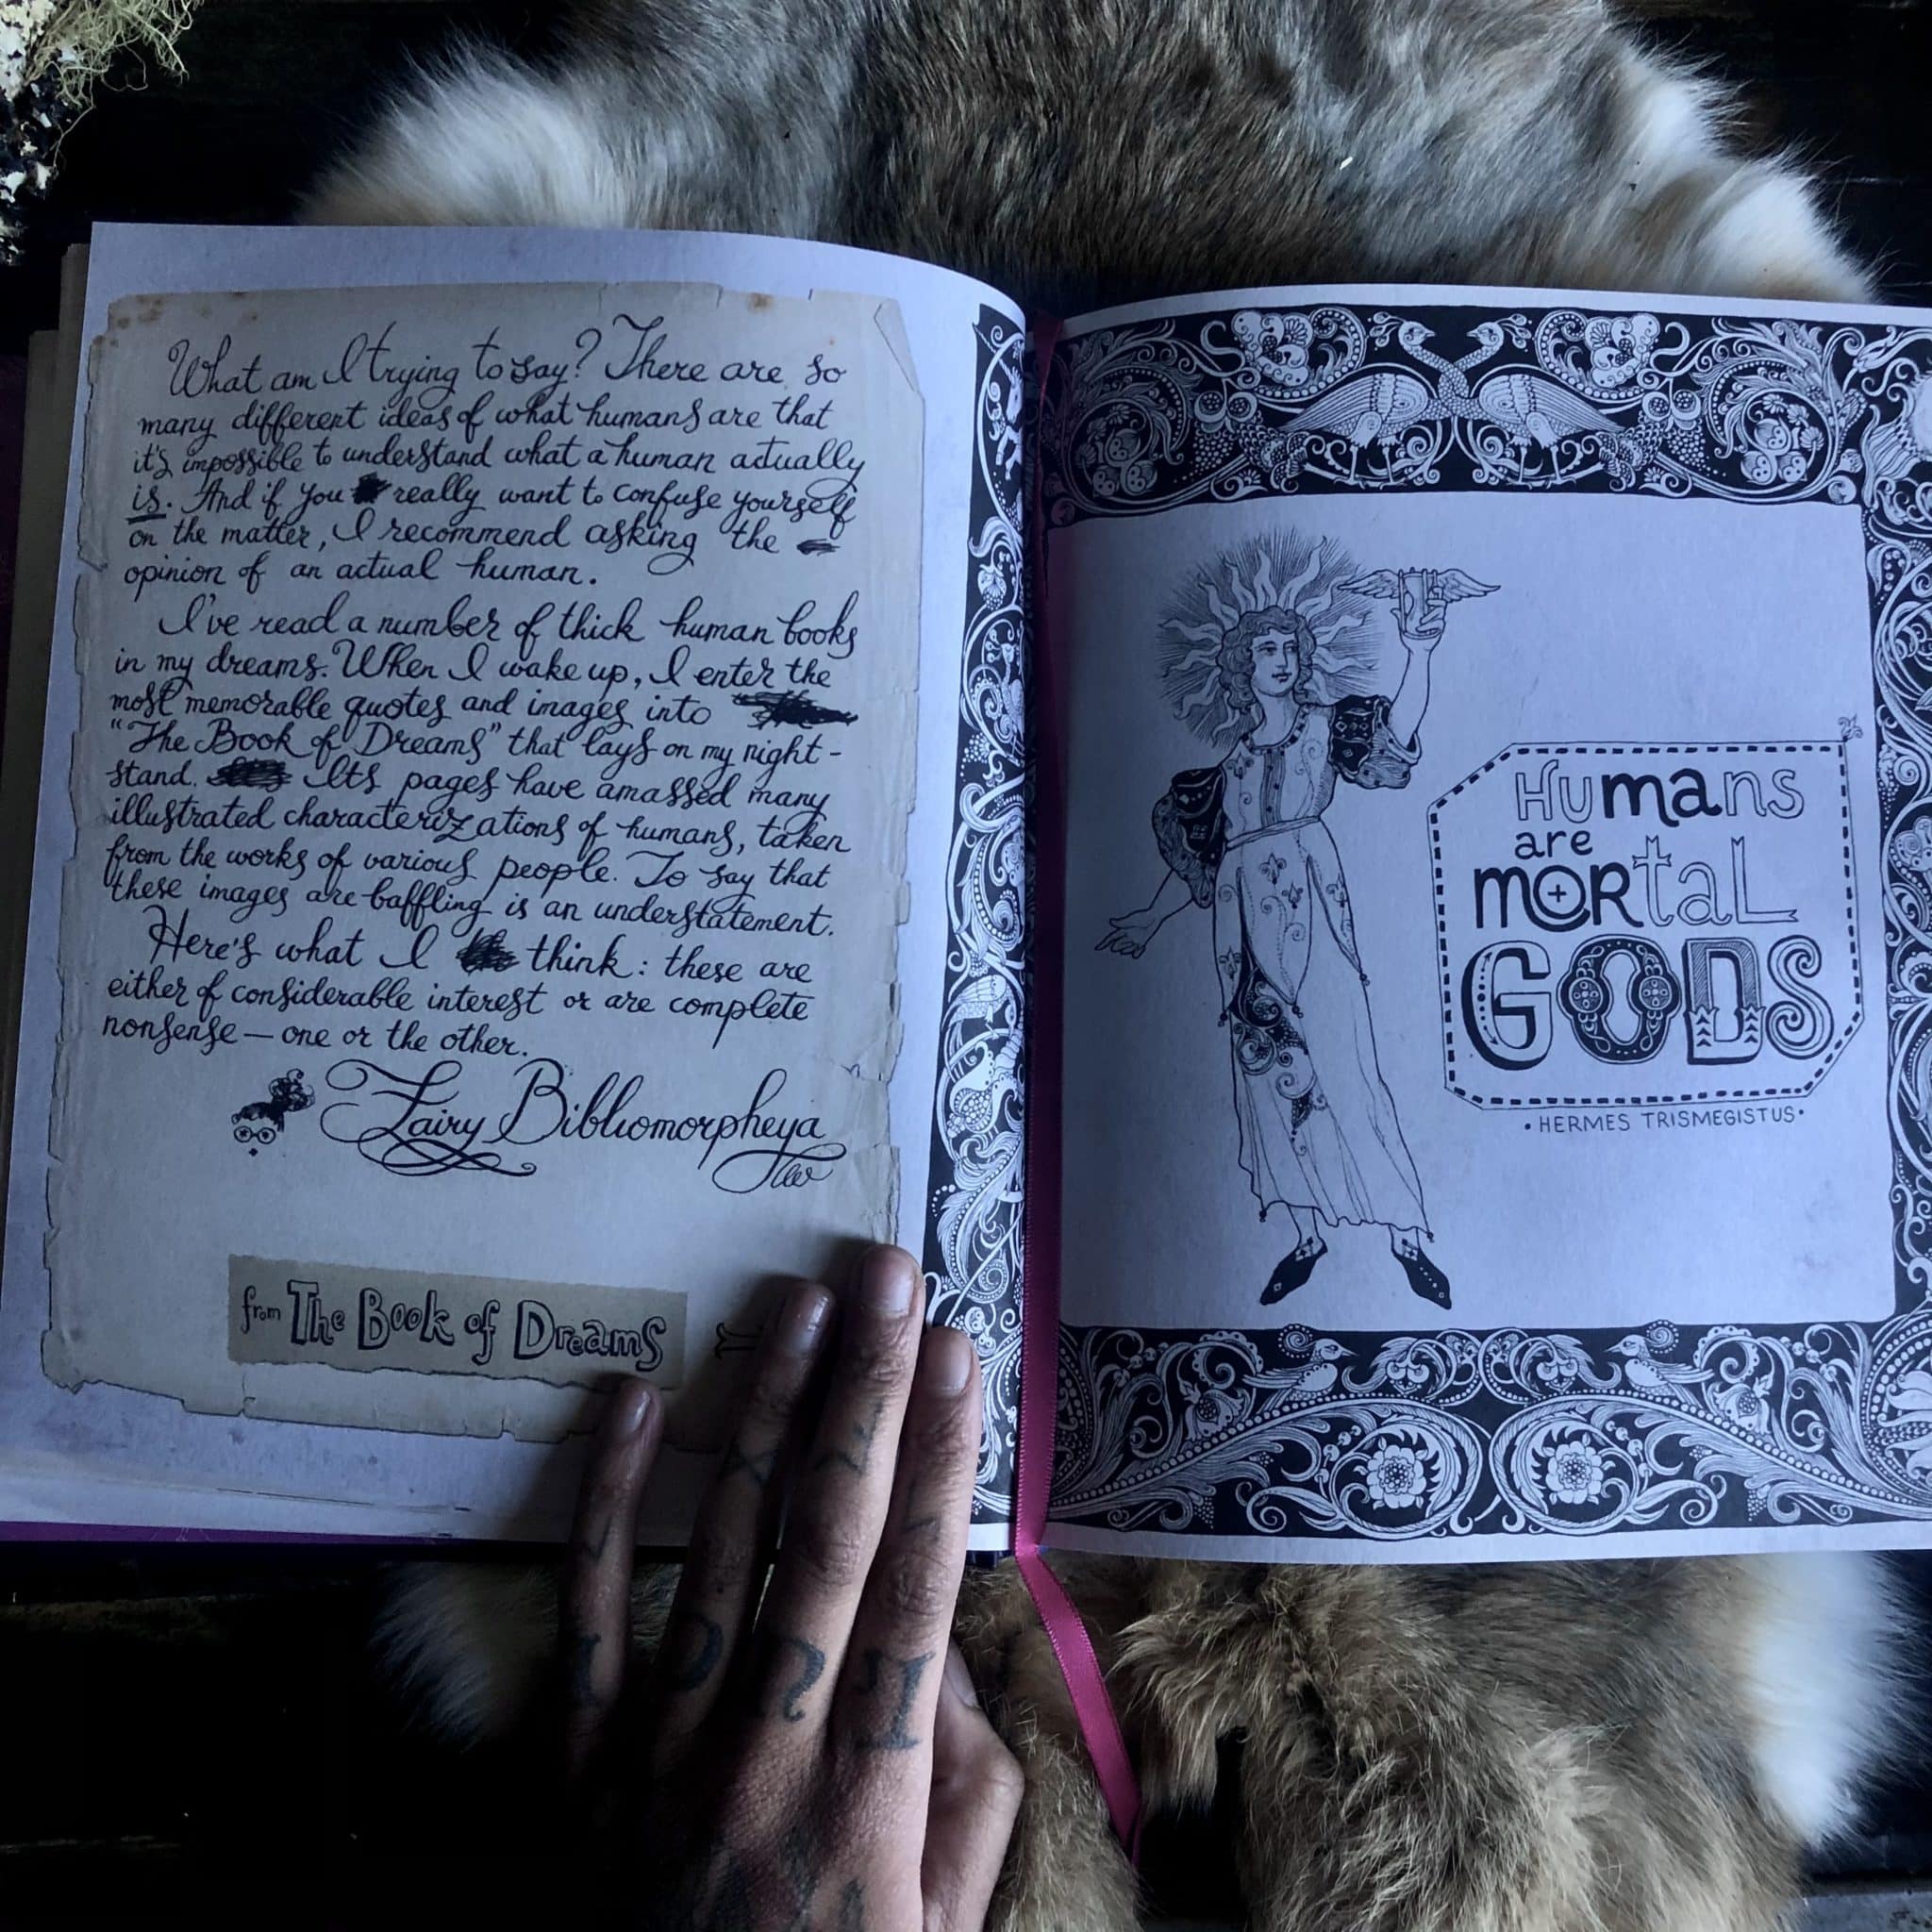 What am I trying to say? There are so
many different ideas of what humans are that
it's impossible to understand what a human actually
is. And if you really want to confuse yourself
on the matter, I recommend asking the
opinion of an actual human.
I've read a number of thick human books
in my dreams. When I wake up, I enter the
most memorable quotes and images into
"The Book of Dreams" that lays on my night-
stand. Its pages have amassed many
illustrated characterizations of humans, taken
from the works of various people. To say that
these images are baffling is an understatement.
Here's what I think: these are
either of considerable interest or are complete
nonsense — one or the other.
Fairy Bibliomorpheya
from The Book of Dreams
Humans
are
mortal
GODS
• HERMES TRISMEGISTUS •